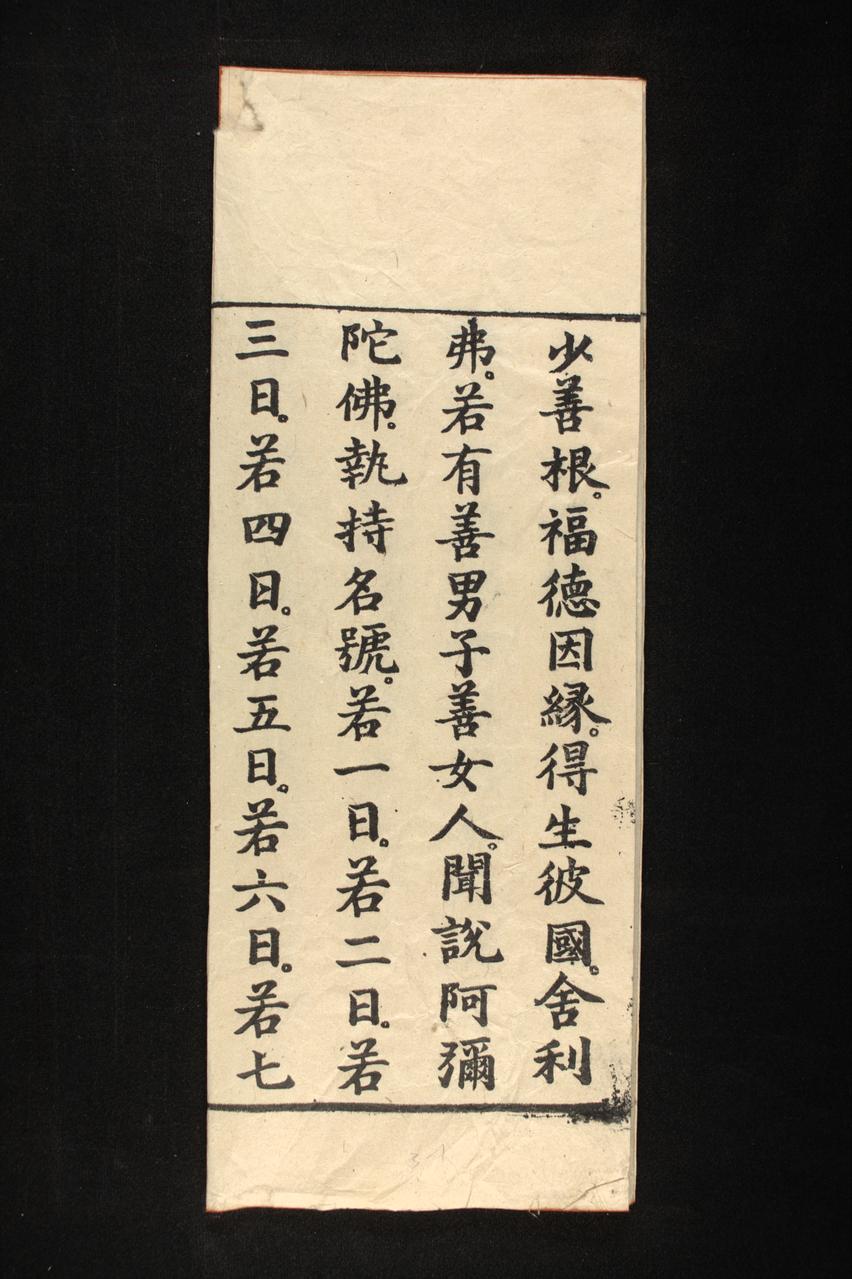 少善根。福德因縁。得生彼國。舍利
弗。若有善男子善女人。聞說阿彌
陀佛。執持名號。若一日。若二日。若
三日。若四日。若五日。若六日。若七